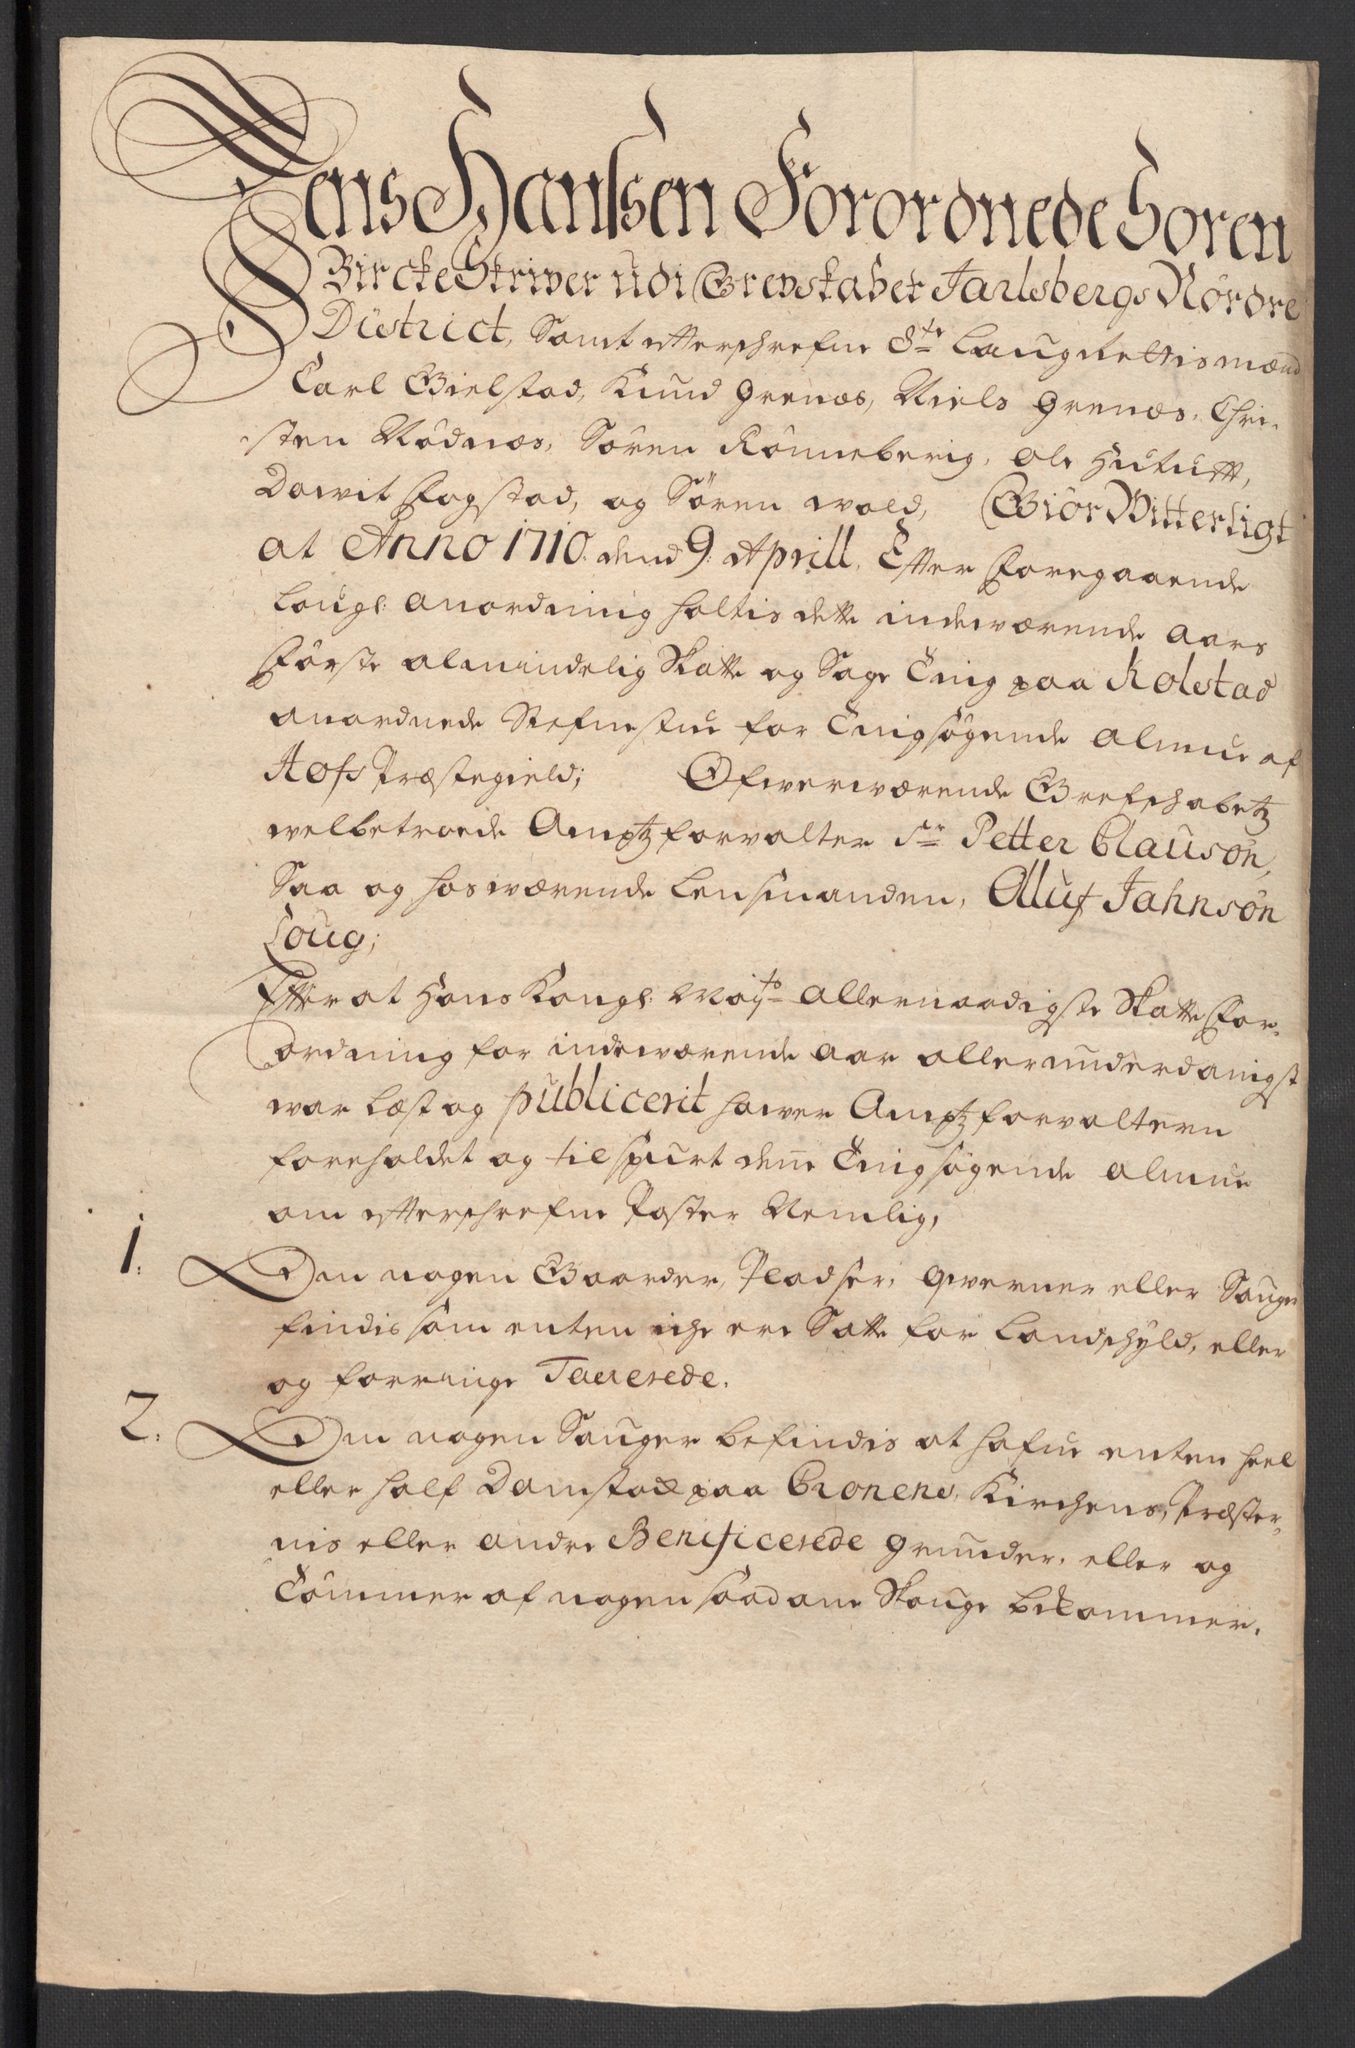 Jens Hanssen Forordnede Soren
Bircke Skriver udi Grevskabet Jarlsbergs Nørdre
District, Samt effterschrefne Laugrettismænd
Carl Gielstad, Knud Grenæs, Niels Grenæs, Chri-
sten Nødnæs, Søren Rønneberig, Ole Hututt,
Dawit Fogstad, og Søren wold, Giør Witterligt
at Anno 1710. dend 9. Aprill, Effter Foregaaende
Lougl: anordning holtis dette indewærende Aars
Første almindelig Skatte og Sage Ting paa Rolstad
anordnede Stefnestue for Tingsøgende almue af
Hofs Præstegield; Ofwerwærende Grefschabetz
welbetroede Amptzforvalter Sr Petter Clausøn,
Saa og hoswærende Lensmanden, Oluf Jahnsøn
Loug;
Efter at Hans Kongl: Mayts Allernaadigste Skatte For-
ordning for indewærende aar allerunderdanigst
war læst og publicerit hawer Amptzforvaltern
foreholdet og tilspurt denne Tingsøgende almue
om effterschrefne Poster Nemlig,
1. Om nogen Gaarder, Pladser, Qwerner eller Sauger
findis som enten iche ere Satte for Landschyld, eller
og forringe Taxerede.
2. Om nogen Sauger befindis at hafue enten heel
eller half Damstok paa Cronens, Kirchens, Præster-
nis eller andre Benificerede grunder, eller og
Tømmer af nogen saadane Skouge bekommer.